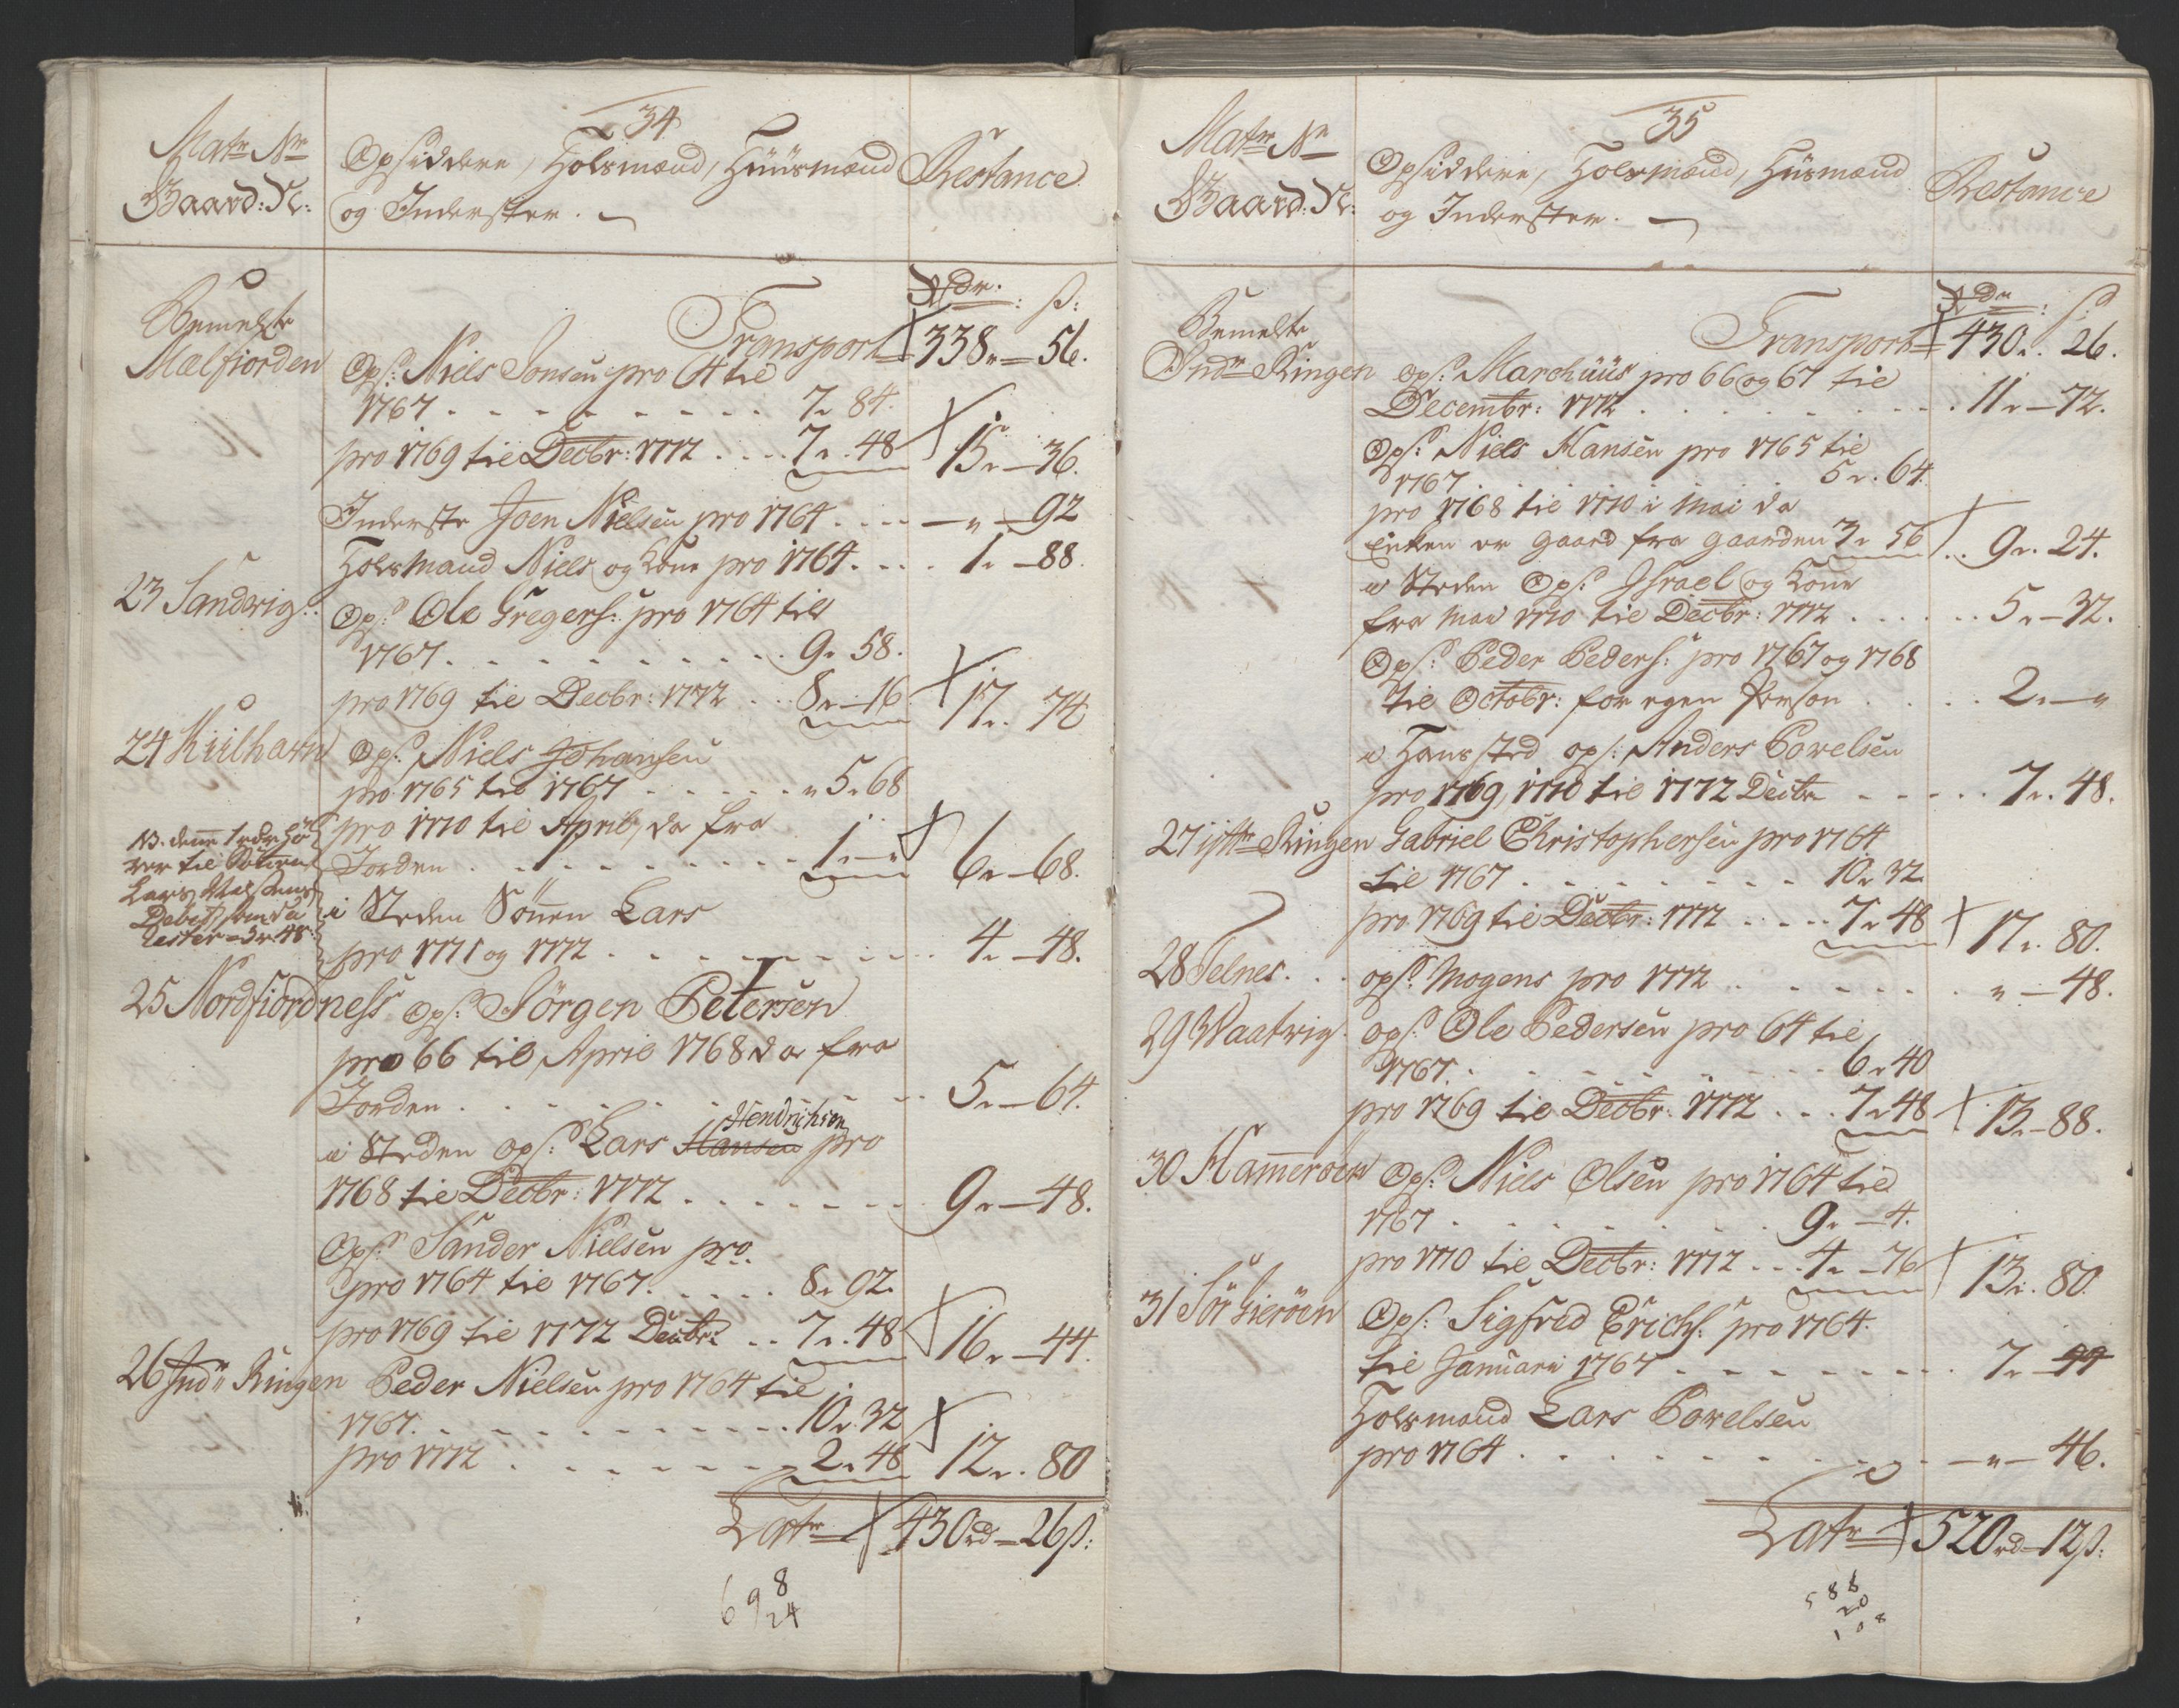 34
Matr Nr
Gaard: N:
Opsiddere, Holsmænd, Huusmænd
og Inderster.
Restance
Rdr. : s:
Bemelte
Mælfiorden
Transport 338 " — 56.
Ops: Niels Jonsen pro 64 til
1767 . . . . . . . . 7 " 84.
pro 1769 til Decbr: 1772 . . . . 7 " 48 15 " — 36.
Inderste Joen Nielsen pro 1764 . . . . — " — 92
Holsmand Niels og Kone pro 1764 . . . . 1 " — 88.
23 Sandvig: Ops: Ole Gregers: pro 1764 till
1767 . . . . . . . . . . 9 " 58.
pro 1769 til Decbr: 1772 . . 8 " — 16 17 " 74
24 Kiilhavn Ops: Niels Johansen
pro 1765 til 1767 . . . . . . " 5 " 68
pro 1770 til April, da fra
Jorden . . . . . . . . 1 " — " 6 " — 68.
NB. denne 1 rdr hö
rer til Sönnen
Lars Nielsens
Debet, som da
rester = 3 r 48
i Steden Sönnen Lars
pro 1771 og 1772 . . . . . . . . . 4 " — 48.
25 Nordfiordness Ops: Jörgen Petersen
pro 66 til April 1768 da fra
Jorden . . . . . . . . . 5 " — 64.
Hendrichsen
i Steden ops: Lars Hansen pro
1768 til Decbr: 1772 . . . . . . . 9 " — 48.
Ops: Sander Nielsen pro
pro 1764 til 1767. . . . . 8 " 92.
pro 1769 til 1772 Decbr: . . 7 " 48 16 " — 44.
26 Indr Ringen Peder Nielsen pro 1764 til
1767. . . . . . . . . . 10 " 32
pro 1772 . . . . . . . 2 " 48 12 " 80
Latr 430 rd — 26 s:
698
24
35
Matr Nr
Gaard: N:
Opsiddere, Holsmænd, Huusmænd
og Inderster.
Restance
Rdr : s
Bemelte
Indr Ringen
Transport 430 " 26.
ops: Marchüüs pro 66 og 67 til
Decembr: 1772 . . . . . . . . . 11 " — 72.
Ops: Niels Hansen pro 1765 til
1767 . . . . . . . 5 " 64.
pro 1768 til 1770 i Mai da
Enken er gaard fra gaarden 3 " 56 . . 9 " 24.
i Steden Ops: Israel og Kone
fra Mai 1770 til Decbr: 1772 . . . . . . 5 " — 32.
Ops: Peder Peders: pro 1767 og 1768
til Octobr: for egen Person . . . . 2 " — "
i Hans sted ops: Anders Povelsen
pro 1769, 1770 til 1772 Decbr . . . . . 7 " 48.
27 ÿttr Ringen Gabriel Christophersen pro 1764
til 1767 . . . . . . . . 10 " 32
pro 1769 til Decbr: 1772 . . . . 7 " 48 17 " 80.
28 Telnes . . . ops: Mogens pro 1772 . . . . . . . " — 48.
29 Waatvig. ops: Ole Pedersen pro 64 til
1767. . . . . . . . . . 6 " 40
pro 1769 til Decbr: 1772 . . . 7 " 48 13 " — 88.
30 Hameröen Ops: Niels Olsen pro 1764 til
1767 . . . . . . . . 9 " — 4.
pro 1770 til Decbr: 1772 . . . 4 " — 76 13 " 80.
31 Sör Gieröen Ops: Sigfred Erichs: pro 1764.
til Januari 1767 . . . . . . . . 7 " — 44
Holsmand Lars Povelsen
pro 1764 . . . . . . . . . — " — 46.
Latr 520 rd — 12 s:
588
20
108